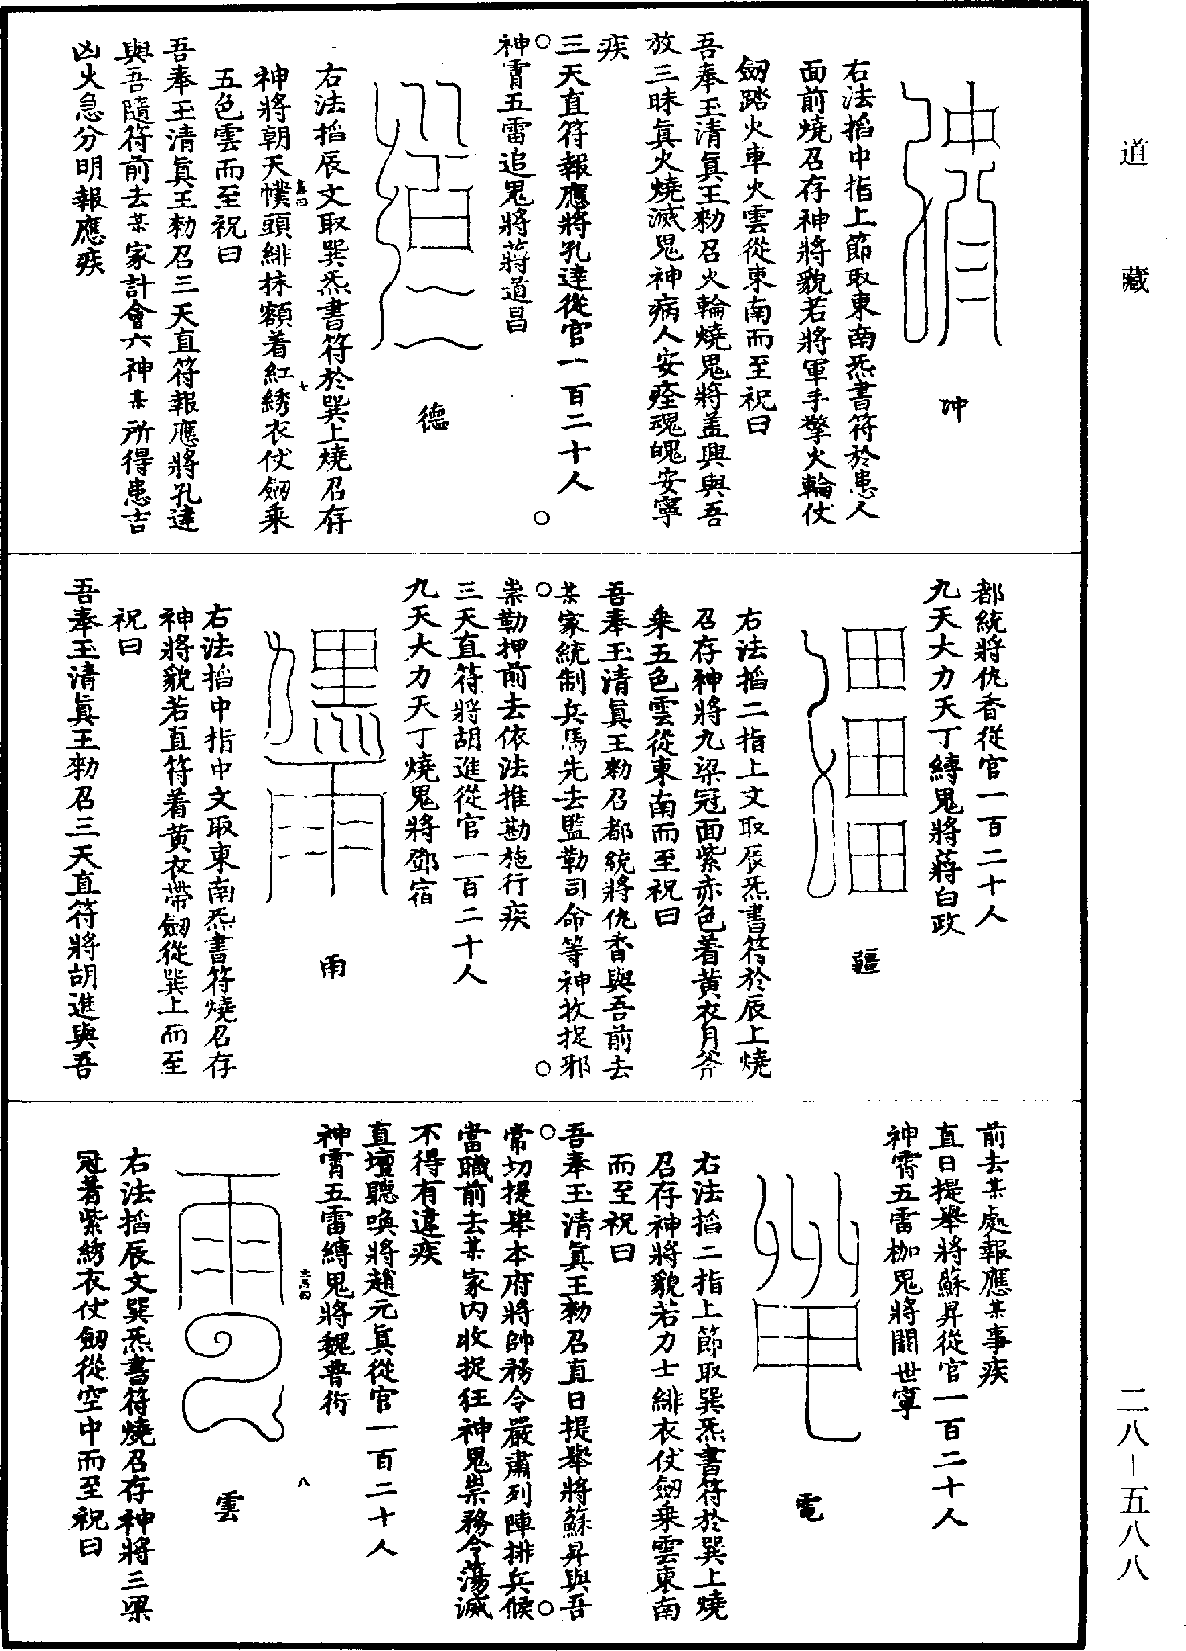 道藏
二八—五八八
冲
右法掐中指上節取東南炁書符於患人
面前燒召存神將貌若將軍手擎火輪仗
劒踏火車火雲從東南而至祝曰
吾奉玉清眞王勑召火輪燒鬼將盖興與吾
放三昧眞火燒滅鬼神病人安痊魂魄安寧
疾
三天直符報應將孔達從官一百二十人
神霄五雷追鬼將蔣道昌
德
右法掐辰文取巽炁書符於巽上燒召存
神將朝天幞頭緋抹額着紅綉衣仗劒乘
五色雲而至祝曰
吾奉玉清眞王勑召三天直符報應將孔達
與吾隨符前去某家計會六神某所得患吉
凶火急分明報應疾
都統將仇香從官一百二十人
九天大力天丁縛鬼將蔣白政
疆
右法掐二指上文取辰炁書符於辰上燒
召存神將九梁冠面紫赤色着黃衣月斧
乘五色雲從東南而至祝曰
吾奉玉清眞王勑召都統將仇香與吾前去
某家統制兵馬先去監勒司命等神收捉邪
祟勒押前去依法推勘施行疾
三天直符將胡進從官一百二十人
九天大力天丁燒鬼將鄧宿
雨
右法掐中指中文取東南炁書符燒召存
神將貌若直符着黃衣帶劒從巽上而至
祝曰
吾奉玉清眞王勑召三天直符將胡進與吾
前去某處報應某事疾
直日提舉將蘇昇從官一百二十人
神霄五雷枷鬼將關世寧
電
右法掐二指上節取巽炁書符於巽上燒
召存神將貌若力士緋衣仗劒乘雲東南
而至祝曰
吾奉玉清眞王勑召直日提舉將蘇昇與吾
常切提舉本府將帥務令嚴肅列陣排兵候
當職前去某家內收捉狂神鬼祟務令蕩滅
不得有違疾
直壇聽喚將趙元眞從官一百二十人
神霄五雷縛鬼將魏普術
八
雲
右法掐辰文巽炁書符燒召存神將三梁
冠着紫綉衣仗劒從空中而至祝曰